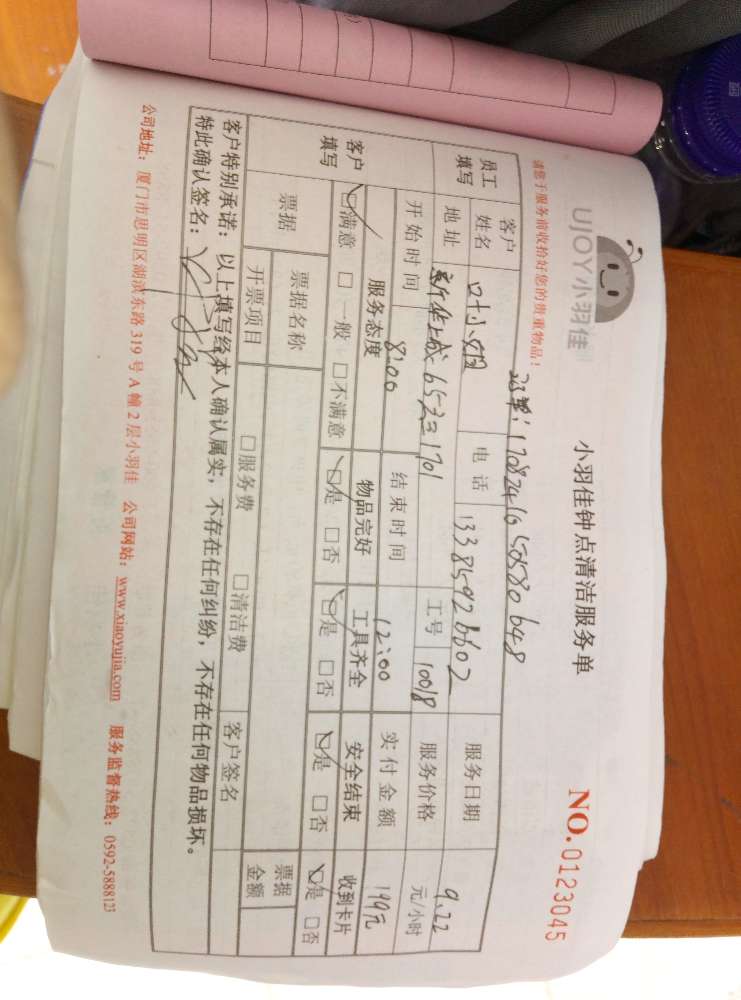 UJOY小羽佳
小羽佳钟点清洁服务单
NO.0123045
请您于服务前收拾好您的贵重物品!
员工填写
客户姓名 叶小姐 电话 服务日期 9.22
地址 65 1701 工号 10018 服务价格 元/小时
开始时间 8:00 结束时间 12:00 实付金额 190元
客户填写
服务态度 物品完好 工具齐全 安全结束 收到卡片
☑满意 □一般 □不满意 ☑是 □否 ☑是 □否 ☑是 □否 ☑是 □否
票据 票据名称 票据金额
开票项目 □服务费 □清洁费 客户签名
客户特别承诺:以上填写经本人确认属实,不存在任何纠纷,不存在任何物品损坏。
特此确认签名:
公司地址:厦门市思明区湖滨东路319号A幢2层小羽佳 公司网站:www.xiaoyujia.com 服务监督热线:0592-5888123